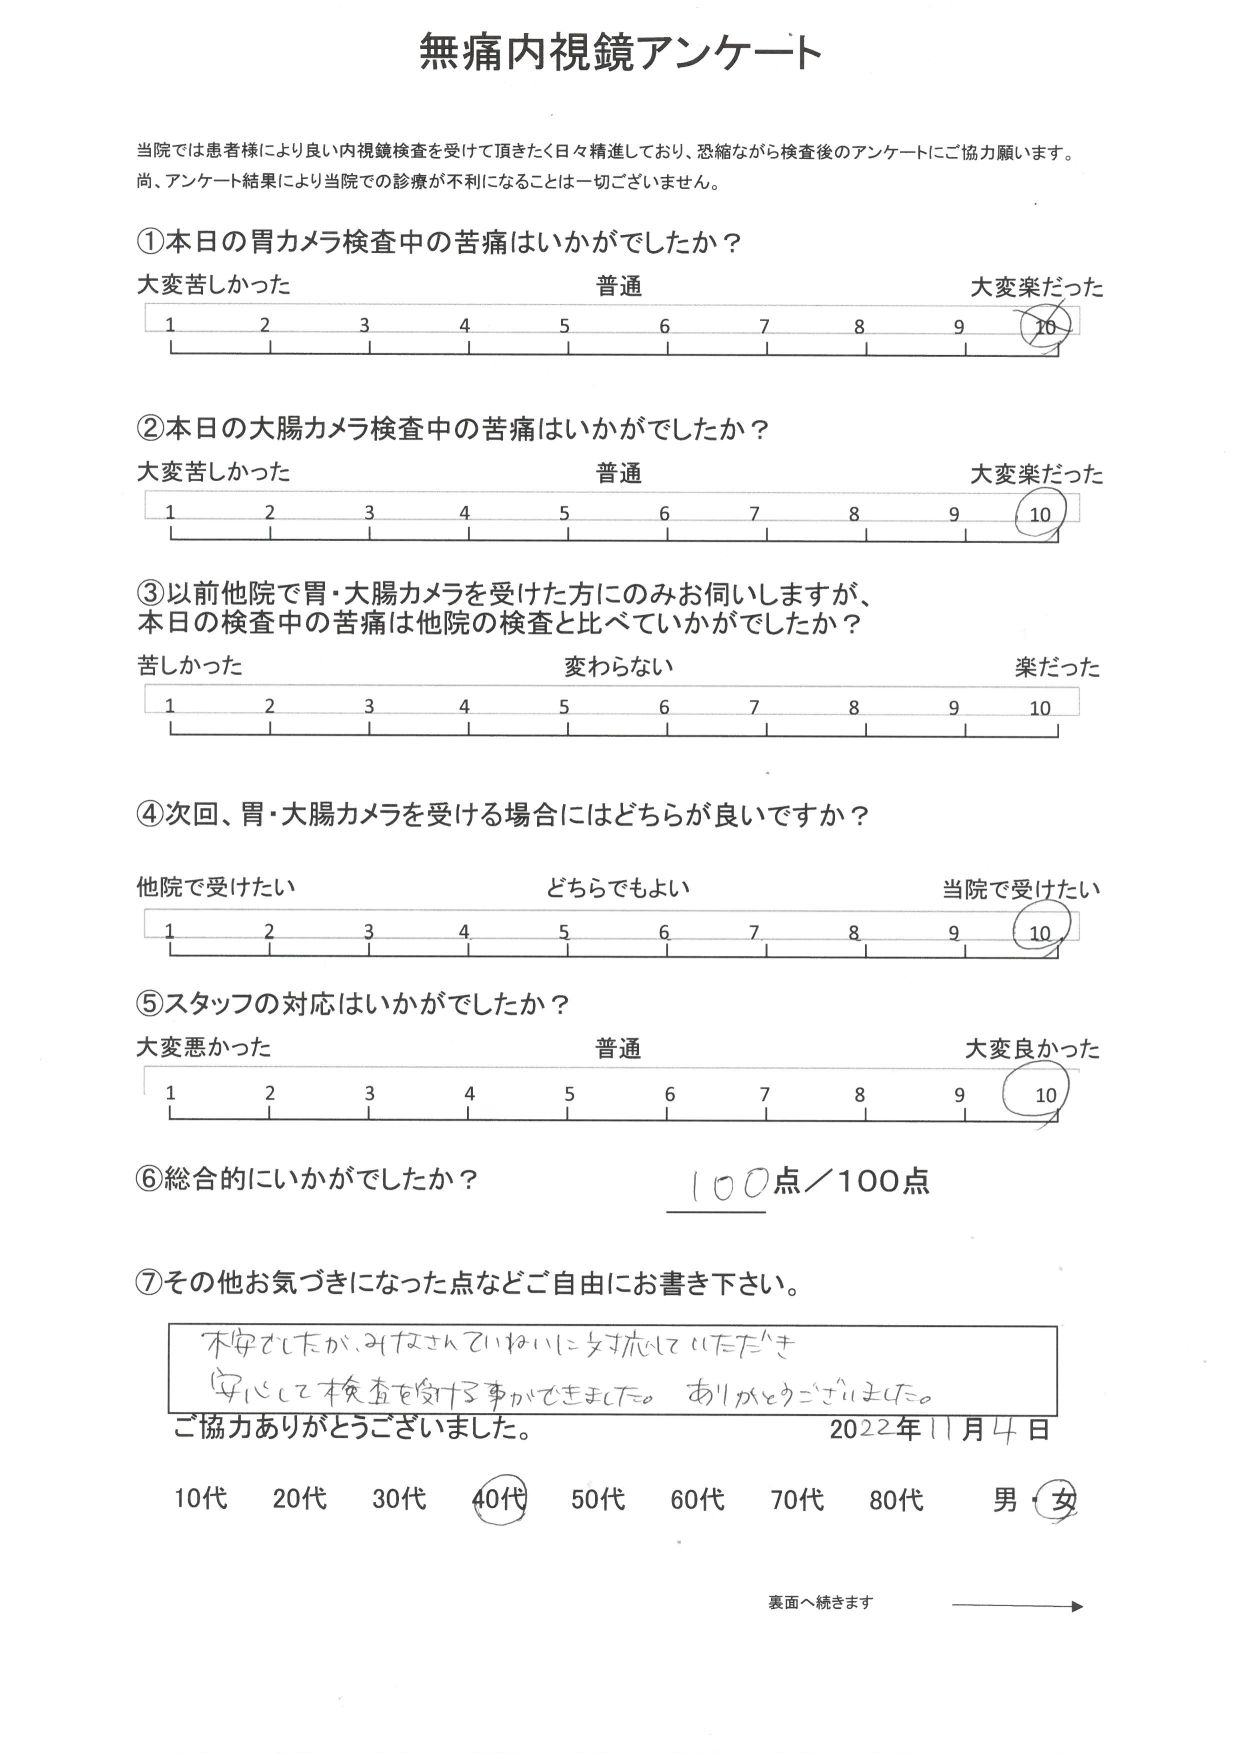 無痛内視鏡アンケート
当院では患者様により良い内視鏡検査を受けて頂きたく日々精進しており、恐縮ながら検査後のアンケートにご協力願います。
尚、アンケート結果により当院での診療が不利になることは一切ございません。
①本日の胃カメラ検査中の苦痛はいかがでしたか？
大変苦しかった 普通 大変楽だった
1 2 3 4 5 6 7 8 9 10
②本日の大腸カメラ検査中の苦痛はいかがでしたか？
大変苦しかった 普通 大変楽だった
1 2 3 4 5 6 7 8 9 10
③以前他院で胃・大腸カメラを受けた方にのみお伺いしますが、
本日の検査中の苦痛は他院の検査と比べていかがでしたか？
苦しかった 変わらない 楽だった
1 2 3 4 5 6 7 8 9 10
④次回、胃・大腸カメラを受ける場合にはどちらが良いですか？
他院で受けたい どちらでもよい 当院で受けたい
1 2 3 4 5 6 7 8 9 10
⑤スタッフの対応はいかがでしたか？
大変悪かった 普通 大変良かった
1 2 3 4 5 6 7 8 9 10
⑥総合的にいかがでしたか？ 100点／100点
⑦その他お気づきになった点などご自由にお書き下さい。
不安でしたが、みなさんていねいに対応していただき
安心して検査を受ける事ができました。 ありがとうございました。
ご協力ありがとうございました。 2022年11月4日
10代 20代 30代 40代 50代 60代 70代 80代 男・女
裏面へ続きます